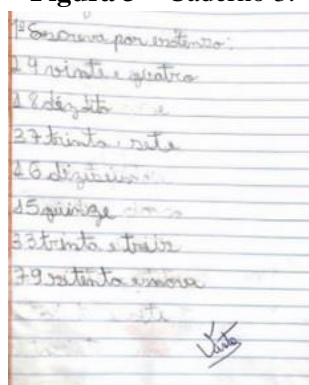 Figura 3 – Caderno 3.
1ª Escreva por extenso:
24 vinte e quatro
18 dezoito e
37 trinta sete
16
15 quinze
33 trinta e
79 setenta enove
Visto